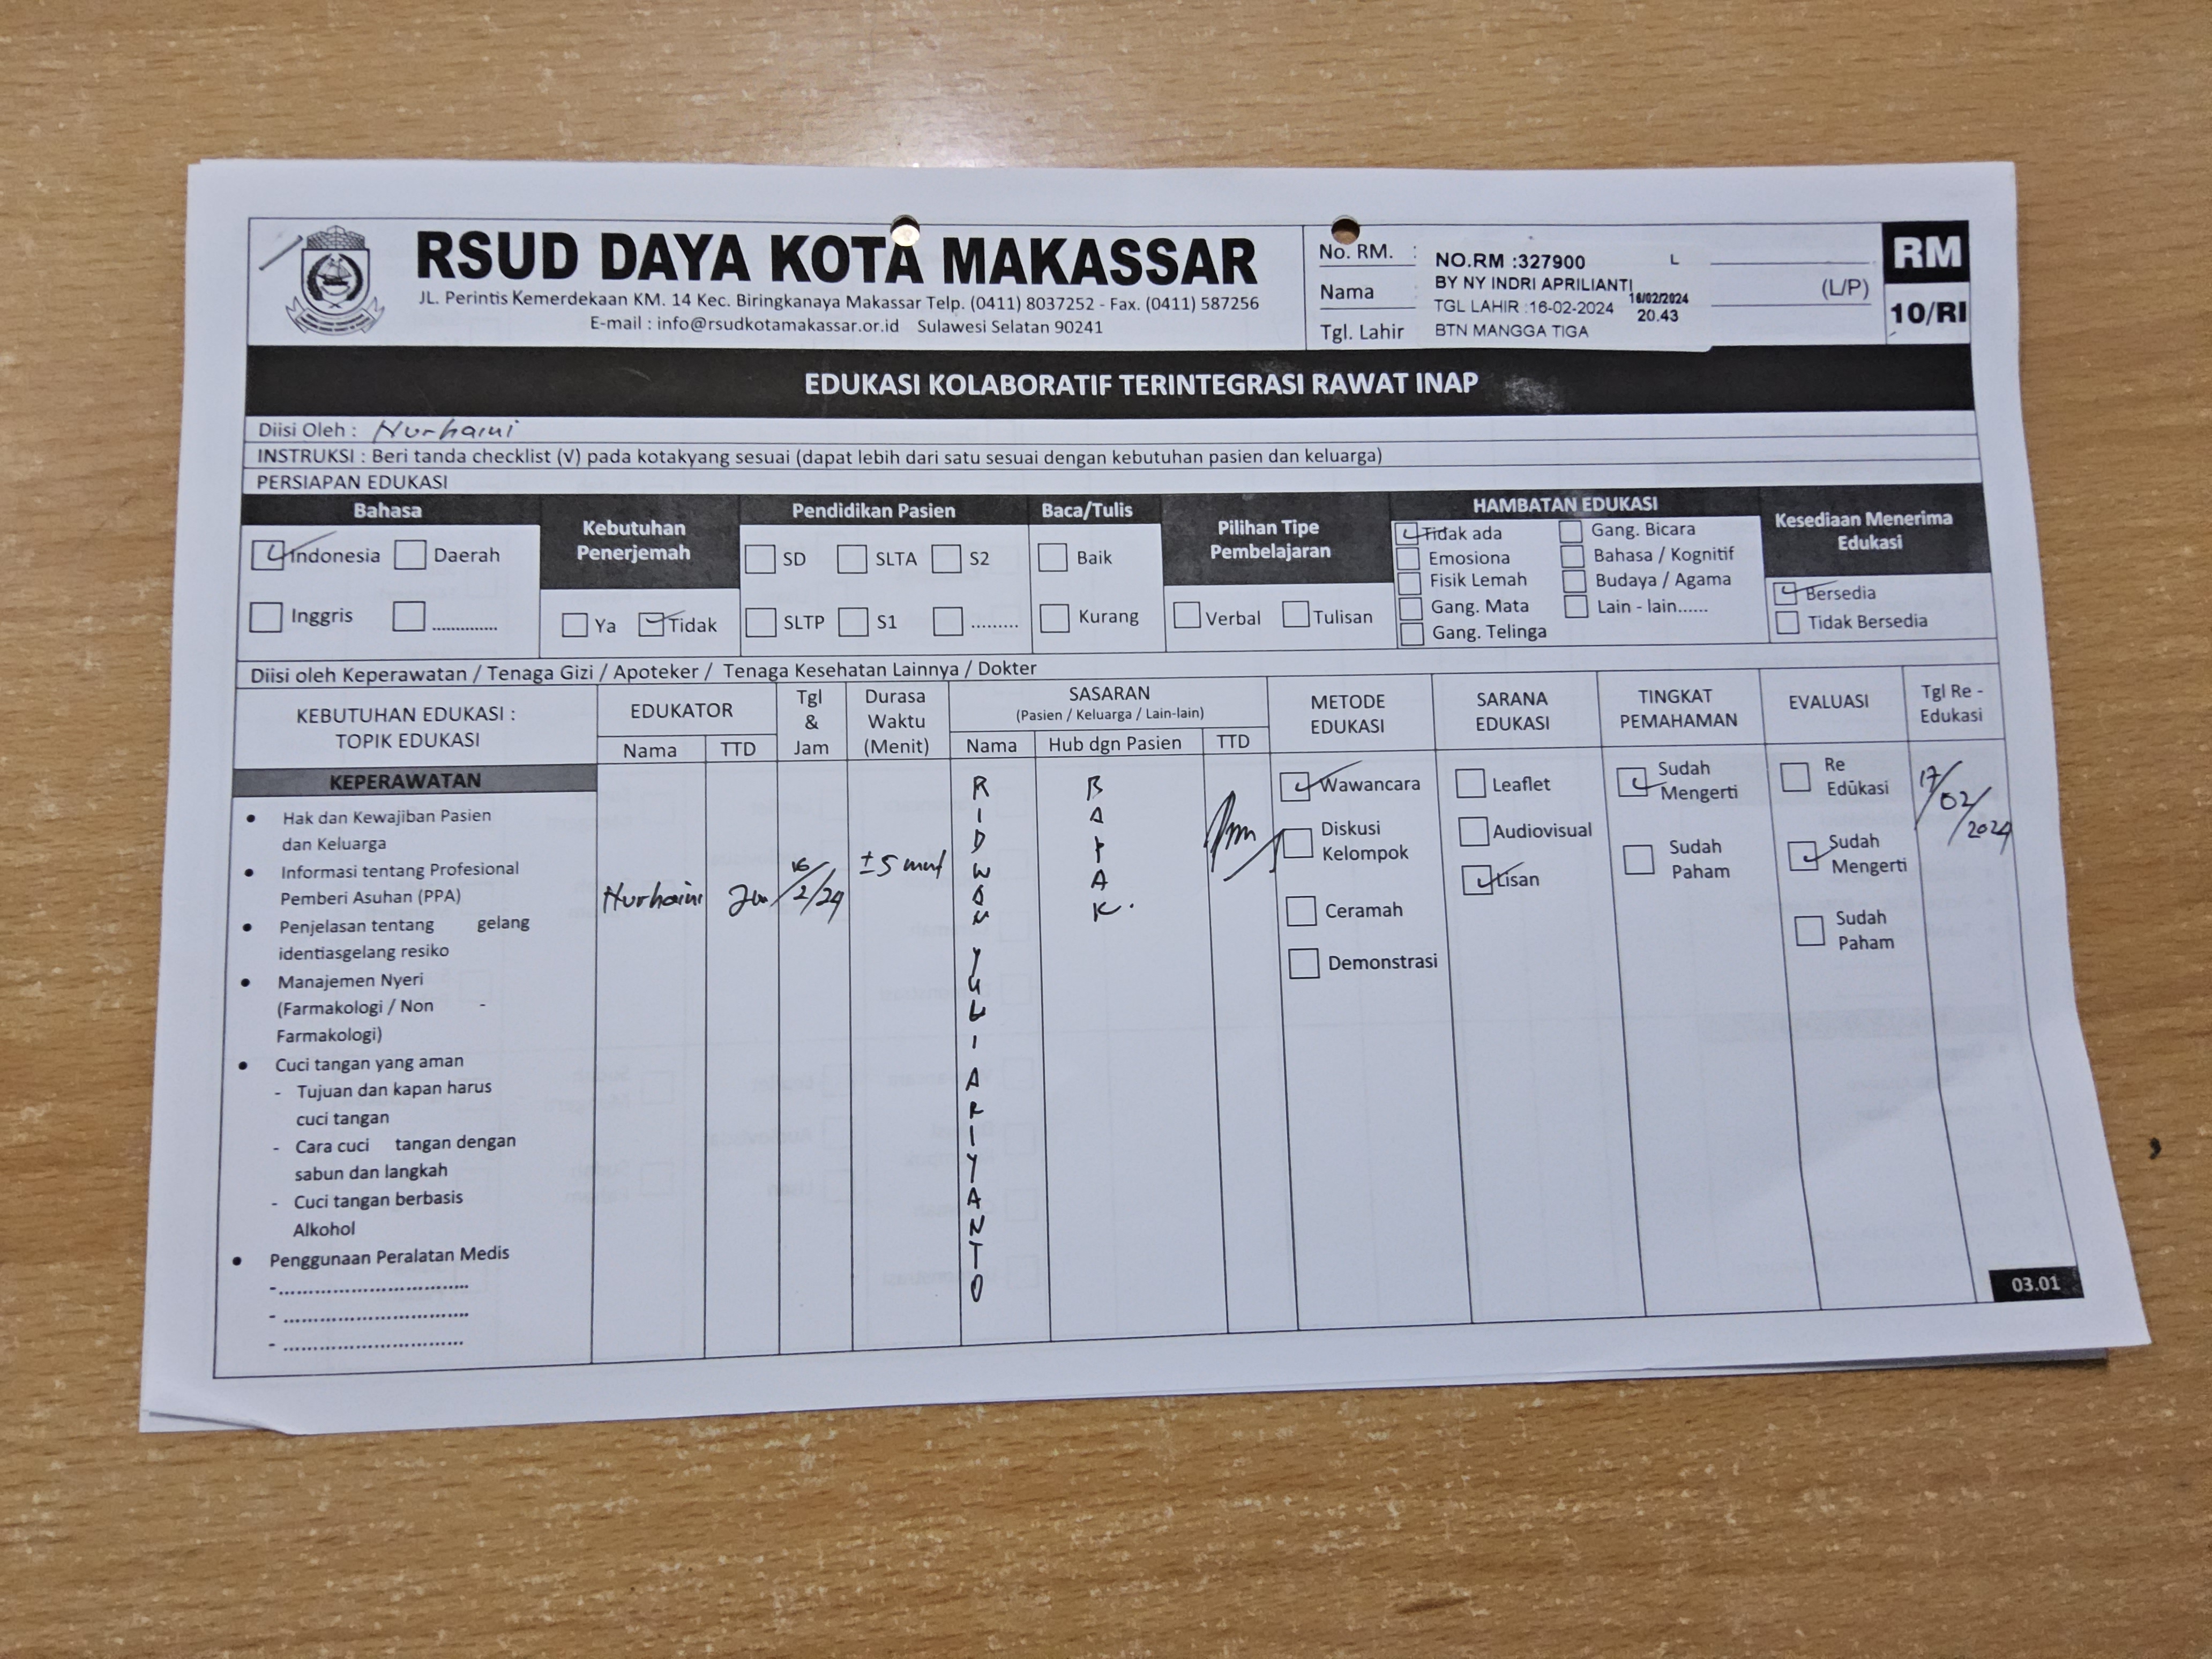 RSUD DAYA KOTA MAKASSAR
JL. Perintis Kemerdekaan KM. 14 Kec. Biringkanaya Makassar Telp. (0411) 8037252 - Fax. (0411) 587256
E-mail : info@rsudkotamakassar.or.id Sulawesi Selatan 90241
No. RM. : NO.RM :327900 L
Nama BY NY INDRI APRILIANTI (L/P)
TGL LAHIR :16-02-2024 16/02/2024 20.43
Tgl. Lahir BTN MANGGA TIGA
RM
10/RI
EDUKASI KOLABORATIF TERINTEGRASI RAWAT INAP
Diisi Oleh : Nurhaini
INSTRUKSI : Beri tanda checklist (√) pada kotakyang sesuai (dapat lebih dari satu sesuai dengan kebutuhan pasien dan keluarga)
PERSIAPAN EDUKASI
Bahasa
Indonesia Daerah
Inggris ..............
Kebutuhan
Penerjemah
Ya Tidak
Pendidikan Pasien
SD SLTA S2
SLTP S1 .........
Baca/Tulis
Baik
Kurang
Pilihan Tipe
Pembelajaran
Verbal Tulisan
HAMBATAN EDUKASI
Tidak ada Gang. Bicara
Emosiona Bahasa / Kognitif
Fisik Lemah Budaya / Agama
Gang. Mata Lain - lain......
Gang. Telinga
Kesediaan Menerima
Edukasi
Bersedia
Tidak Bersedia
Diisi oleh Keperawatan / Tenaga Gizi / Apoteker / Tenaga Kesehatan Lainnya / Dokter
KEBUTUHAN EDUKASI :
TOPIK EDUKASI
EDUKATOR
Nama TTD
Tgl
&
Jam
Durasa
Waktu
(Menit)
SASARAN
(Pasien / Keluarga / Lain-lain)
Nama Hub dgn Pasien TTD
METODE
EDUKASI
SARANA
EDUKASI
TINGKAT
PEMAHAMAN
EVALUASI
Tgl Re -
Edukasi
KEPERAWATAN
• Hak dan Kewajiban Pasien
dan Keluarga
• Informasi tentang Profesional
Pemberi Asuhan (PPA)
• Penjelasan tentang gelang
identiasgelang resiko
• Manajemen Nyeri
(Farmakologi / Non -
Farmakologi)
• Cuci tangan yang aman
- Tujuan dan kapan harus
cuci tangan
- Cara cuci tangan dengan
sabun dan langkah
- Cuci tangan berbasis
Alkohol
• Penggunaan Peralatan Medis
- ..............................
- ..............................
- ..............................
Nurhaini
16/2/24
±5 mnt
RIDWAN YULI ARIYANTO
BAPAK.
Wawancara
Diskusi
Kelompok
Ceramah
Demonstrasi
Leaflet
Audiovisual
Lisan
Sudah
Mengerti
Sudah
Paham
Re
Edukasi
Sudah
Mengerti
Sudah
Paham
17/02/2024
03.01